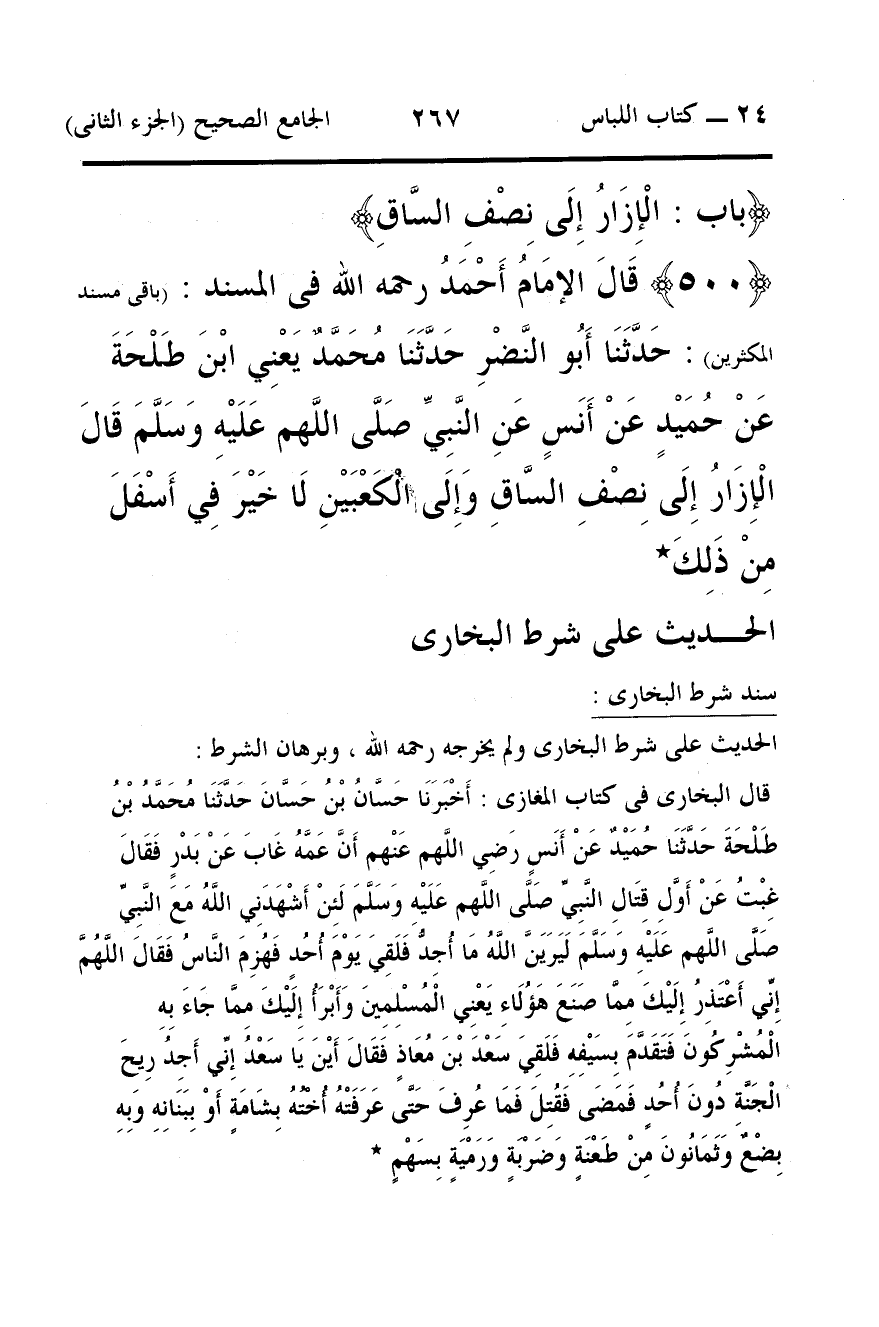 ٢٤ ــ كتاب اللباس ٢٦٧ الجامع الصحيح (الجزء الثانى)
﴿باب : الْإِزَارُ إِلَى نِصْفِ السَّاقِ﴾
﴿٥٠٠﴾ قَالَ الإِمَامُ أَحْمَدُ رحمه الله فى المسند : (باقى مسند
المكثرين) : حَدَّثَنَا أَبُو النَّضْرِ حَدَّثَنَا مُحَمَّدٌ يَعْنِي ابْنَ طَلْحَةَ
عَنْ حُمَيْدٍ عَنْ أَنَسٍ عَنِ النَّبِيِّ صَلَّى اللَّهم عَلَيْهِ وَسَلَّمَ قَالَ
الْإِزَارُ إِلَى نِصْفِ السَّاقِ وَإِلَى الْكَعْبَيْنِ لَا خَيْرَ فِي أَسْفَلَ
مِنْ ذَلِكَ*
الحــديث على شرط البخارى
سند شرط البخارى :
الحديث على شرط البخارى ولم يخرجه رحمه الله ، وبرهان الشرط :
قال البخارى فى كتاب المغازى : أَخْبَرَنَا حَسَّانُ بْنُ حَسَّانَ حَدَّثَنَا مُحَمَّدُ بْنُ
طَلْحَةَ حَدَّثَنَا حُمَيْدٌ عَنْ أَنَسٍ رَضِي اللَّهم عَنْهم أَنَّ عَمَّهُ غَابَ عَنْ بَدْرٍ فَقَالَ
غِبْتُ عَنْ أَوَّلِ قِتَالِ النَّبِيِّ صَلَّى اللَّهم عَلَيْهِ وَسَلَّمَ لَئِنْ أَشْهَدَنِي اللَّهُ مَعَ النَّبِيِّ
صَلَّى اللَّهم عَلَيْهِ وَسَلَّمَ لَيَرَيَنَّ اللَّهُ مَا أُجِدُّ فَلَقِيَ يَوْمَ أُحُدٍ فَهُزِمَ النَّاسُ فَقَالَ اللَّهُمَّ
إِنِّي أَعْتَذِرُ إِلَيْكَ مِمَّا صَنَعَ هَؤُلَاءِ يَعْنِي الْمُسْلِمِينَ وَأَبْرَأُ إِلَيْكَ مِمَّا جَاءَ بِهِ
الْمُشْرِكُونَ فَتَقَدَّمَ بِسَيْفِهِ فَلَقِيَ سَعْدَ بْنَ مُعَاذٍ فَقَالَ أَيْنَ يَا سَعْدُ إِنِّي أَجِدُ رِيحَ
الْجَنَّةِ دُونَ أُحُدٍ فَمَضَى فَقُتِلَ فَمَا عُرِفَ حَتَّى عَرَفَتْهُ أُخْتُهُ بِشَامَةٍ أَوْ بِبَنَانِهِ وَبِهِ
بِضْعٌ وَثَمَانُونَ مِنْ طَعْنَةٍ وَضَرْبَةٍ وَرَمْيَةٍ بِسَهْمٍ *